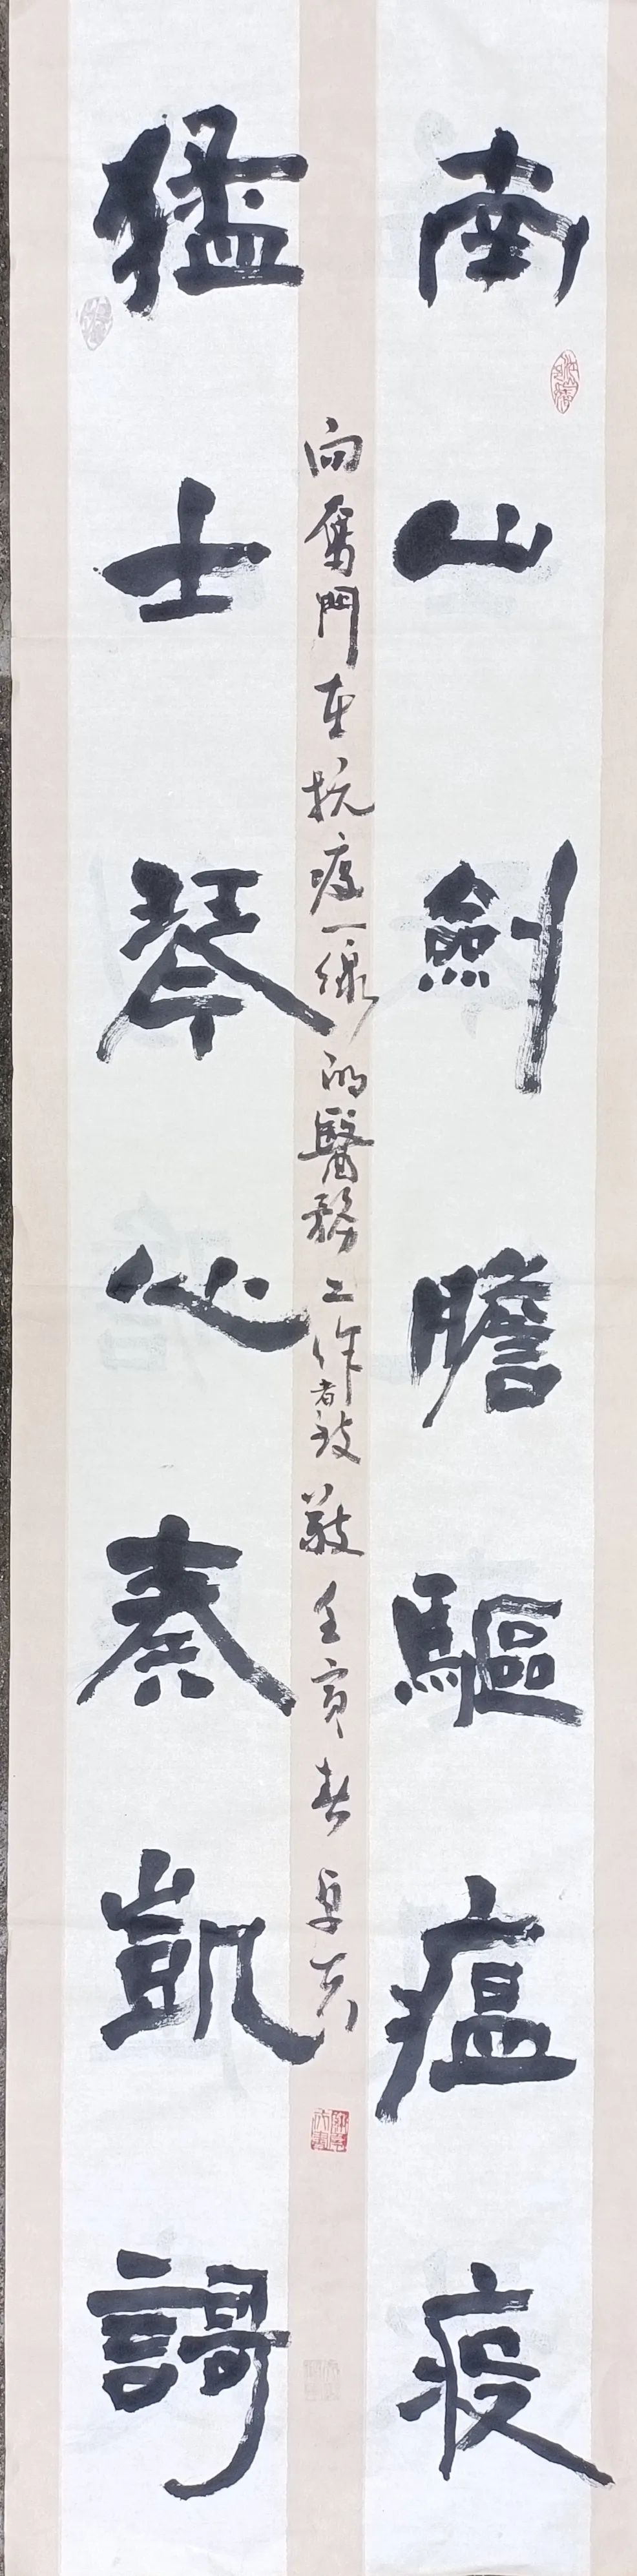 南山劍膽驅瘟疫
向奮鬥在抗疫一線的醫務工作者致敬 壬寅春 卓夫
猛士琴心奏凱謌